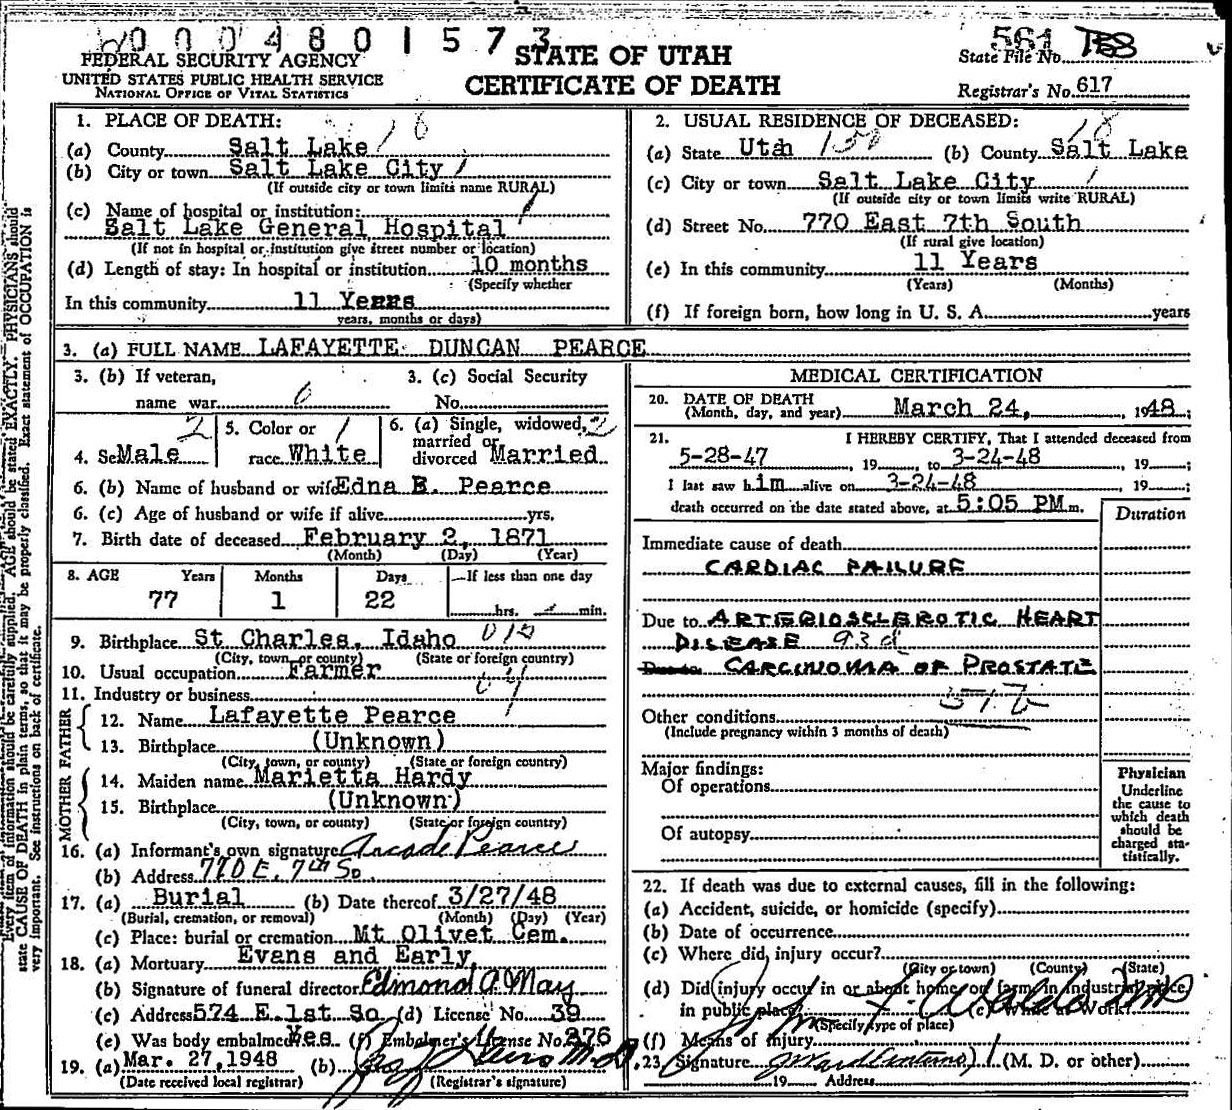 0 0 0 4 8 0 1 5 7 3
FEDERAL SECURITY AGENCY
UNITED STATES PUBLIC HEALTH SERVICE
NATIONAL OFFICE OF VITAL STATISTICS
STATE OF UTAH
CERTIFICATE OF DEATH
561
State File No.
Registrar's No. 617
Every item of information should be carefully supplied. AGE should be stated EXACTLY. PHYSICIANS should
state CAUSE OF DEATH in plain terms, so that it may be properly classified. Exact statement of OCCUPATION is
very important. See instructions on back of certificate.
1. PLACE OF DEATH: 18
(a) County Salt Lake
(b) City or town Salt Lake City 1
(If outside city or town limits name RURAL)
(c) Name of hospital or institution:
Salt Lake General Hospital
(If not in hospital or institution give street number or location)
(d) Length of stay: In hospital or institution 10 months
(Specify whether
In this community 11 Years
years, months or days)
2. USUAL RESIDENCE OF DECEASED: 18
(a) State Utah 150 (b) County Salt Lake
(c) City or town Salt Lake City 1
(If outside city or town limits write RURAL)
(d) Street No. 770 East 7th South
(If rural give location)
(e) In this community 11 Years
(Years) (Months)
(f) If foreign born, how long in U. S. A. years
3. (a) FULL NAME LAFAYETTE DUNCAN PEARCE
3. (b) If veteran,
name war 0
3. (c) Social Security
No.
4. Sex Male 2
5. Color or 1
race White
6. (a) Single, widowed, 2
married or
divorced Married
6. (b) Name of husband or wife Edna B. Pearce
6. (c) Age of husband or wife if alive yrs.
7. Birth date of deceased February 2, 1871
(Month) (Day) (Year)
8. AGE Years Months Days If less than one day
77 1 22 hrs. min.
9. Birthplace St Charles, Idaho
(City, town or county) (State or foreign country)
10. Usual occupation Farmer
11. Industry or business
FATHER
12. Name Lafayette Pearce
13. Birthplace (Unknown)
(City, town, or county) (State or foreign country)
MOTHER
14. Maiden name Marietta Hardy
15. Birthplace (Unknown)
(City, town, or county) (State or foreign country)
16. (a) Informant's own signature Arcade Pearce
(b) Address 770 E. 7th So.
17. (a) Burial (b) Date thereof 3/27/48
(Burial, cremation, or removal) (Month) (Day) (Year)
(c) Place: burial or cremation Mt Olivet Cem.
18. (a) Mortuary Evans and Early
(b) Signature of funeral director Edmond A. May
(c) Address 574 E. 1st So (d) License No. 39
(e) Was body embalmed Yes (f) Embalmer's License No. 376
19. (a) Mar. 27, 1948 (b) M.D.
(Date received local registrar) (Registrar's signature)
MEDICAL CERTIFICATION
20. DATE OF DEATH
(Month, day, and year) March 24, 1948;
21. I HEREBY CERTIFY, That I attended deceased from
5-28-47, 19 , to 3-24-48, 19 ;
I last saw him alive on 3-24-48, 19 ;
death occurred on the date stated above, at 5:05 PM m.
Duration
Immediate cause of death
CARDIAC FAILURE
Due to ARTERIOSCLEROTIC HEART
DISEASE 93d
Due to CARCINOMA OF PROSTATE
Other conditions
(Include pregnancy within 3 months of death)
Major findings:
Of operations
Of autopsy
Physician
Underline
the cause to
which death
should be
charged sta-
tistically.
22. If death was due to external causes, fill in the following:
(a) Accident, suicide, or homicide (specify)
(b) Date of occurrence
(c) Where did injury occur?
(City or town) (County) (State)
(d) Did injury occur in or about home or farm in industrial place,
in public place? (e) While at work?
(Specify type of place)
(f) Means of injury
23. Signature (M. D. or other)
19 Address